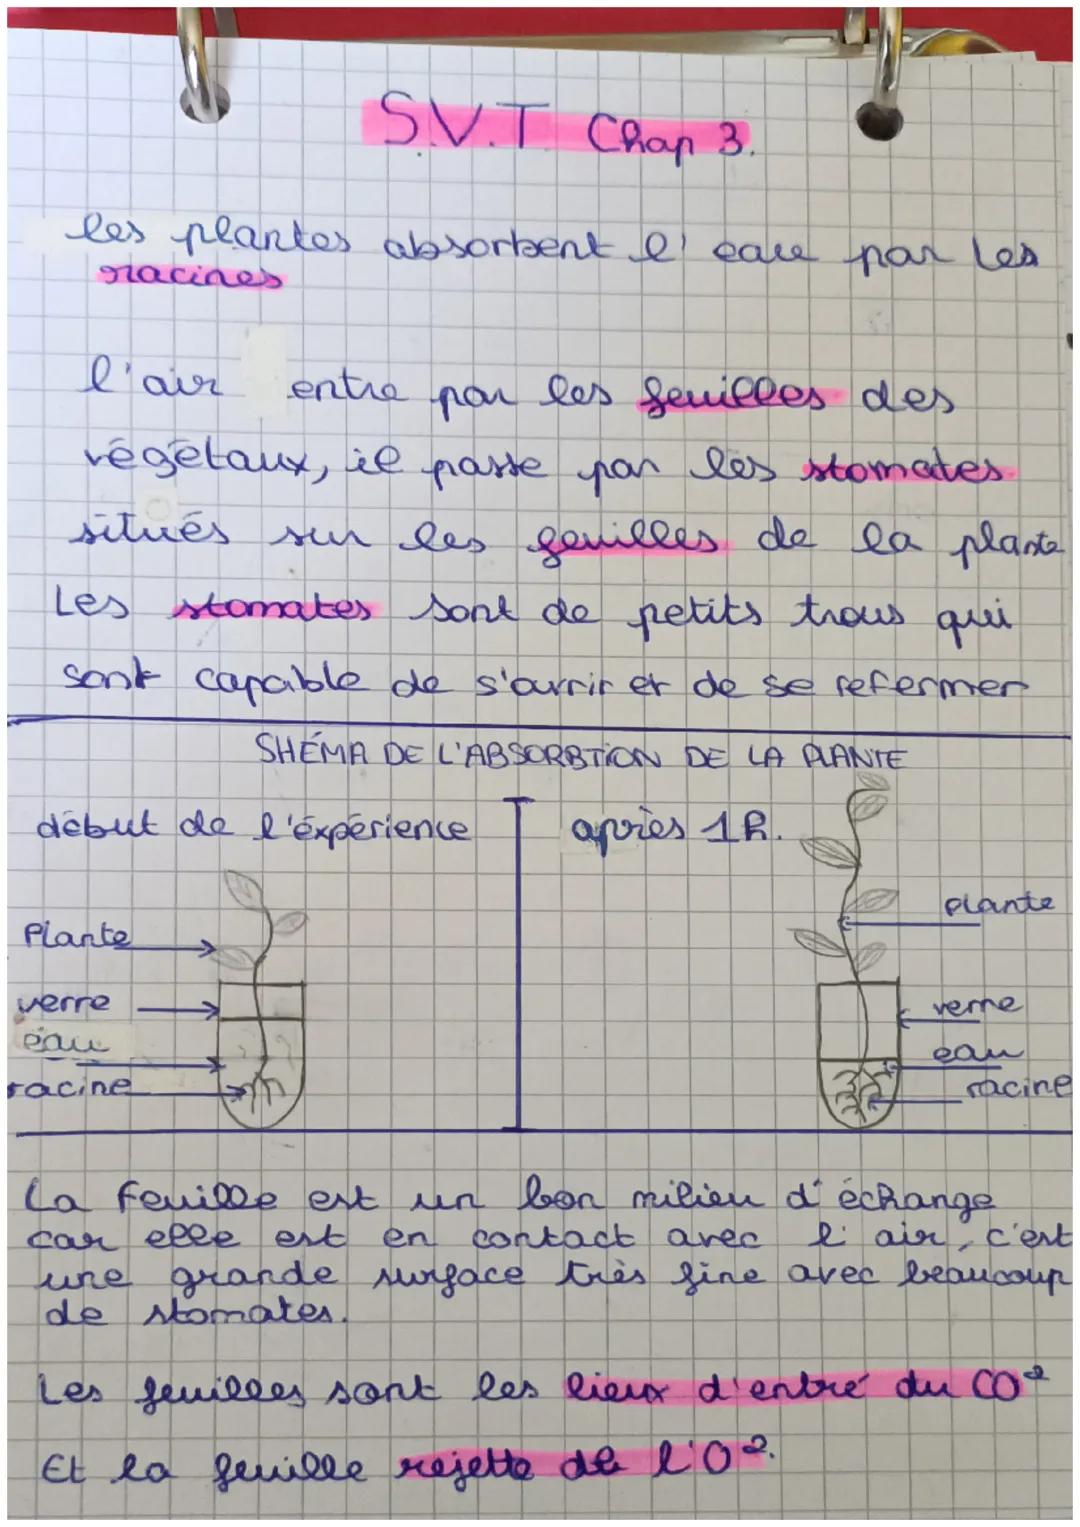 S.V.T Chap 3.
les plantes absorbent l'eau par les
racines
l'air entre par les feuilles des
végétaux, il passe par les stomates
situés sur les feuilles de la plante
Les stomates sont de petits trous qui
sont capable de s'ouvrir et de se refermer
SHÉMA DE L'ABSORBTION DE LA PLANTE
début de l'éxpérience
après 1h.
Plante
verre
eau
racine
plante
verre
eau
racine
La feuille est un bon milieu d'échange
car elle est en contact avec l'air, c'est
une grande surface très fine avec beaucoup
de stomates.
Les feuilles sont les lieux d'entré du CO²
Et la feuille rejette de l'O².